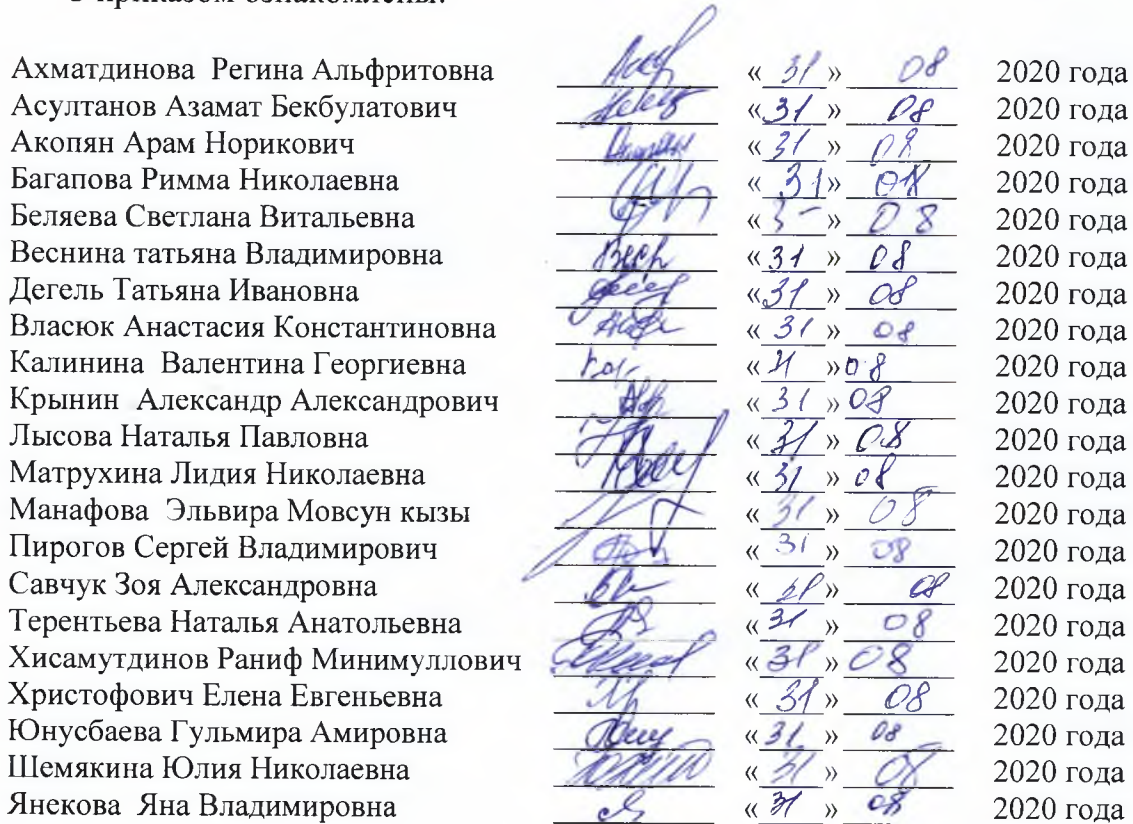 Ахматдинова Регина Альфритовна « 31 » 08 2020 года
Асултанов Азамат Бекбулатович « 31 » 08 2020 года
Акопян Арам Норикович « 31 » 08 2020 года
Багапова Римма Николаевна « 31 » 08 2020 года
Беляева Светлана Витальевна « » 08 2020 года
Веснина татьяна Владимировна « 31 » 08 2020 года
Дегель Татьяна Ивановна « 31 » 08 2020 года
Власюк Анастасия Константиновна « 31 » 08 2020 года
Калинина Валентина Георгиевна « 31 » 08 2020 года
Крынин Александр Александрович « 31 » 08 2020 года
Лысова Наталья Павловна « 31 » 08 2020 года
Матрухина Лидия Николаевна « 31 » 08 2020 года
Манафова Эльвира Мовсун кызы « 31 » 08 2020 года
Пирогов Сергей Владимирович « 31 » 08 2020 года
Савчук Зоя Александровна « 31 » 08 2020 года
Терентьева Наталья Анатольевна « 31 » 08 2020 года
Хисамутдинов Раниф Минимуллович « 31 » 08 2020 года
Христофович Елена Евгеньевна « 31 » 08 2020 года
Юнусбаева Гульмира Амировна « 31 » 08 2020 года
Шемякина Юлия Николаевна « 31 » 08 2020 года
Янекова Яна Владимировна « 31 » 08 2020 года